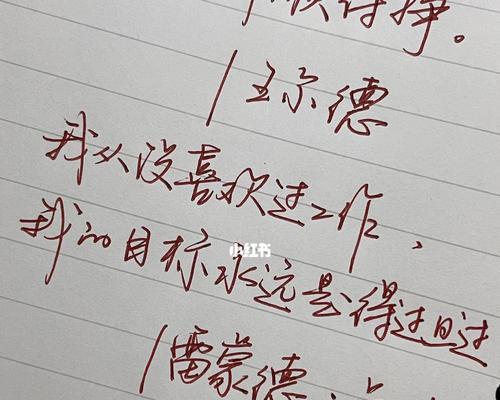 得挣。
/王尔德
我从没喜欢过工作,
我的目标永远是得过且过
小红书
/雷蒙德